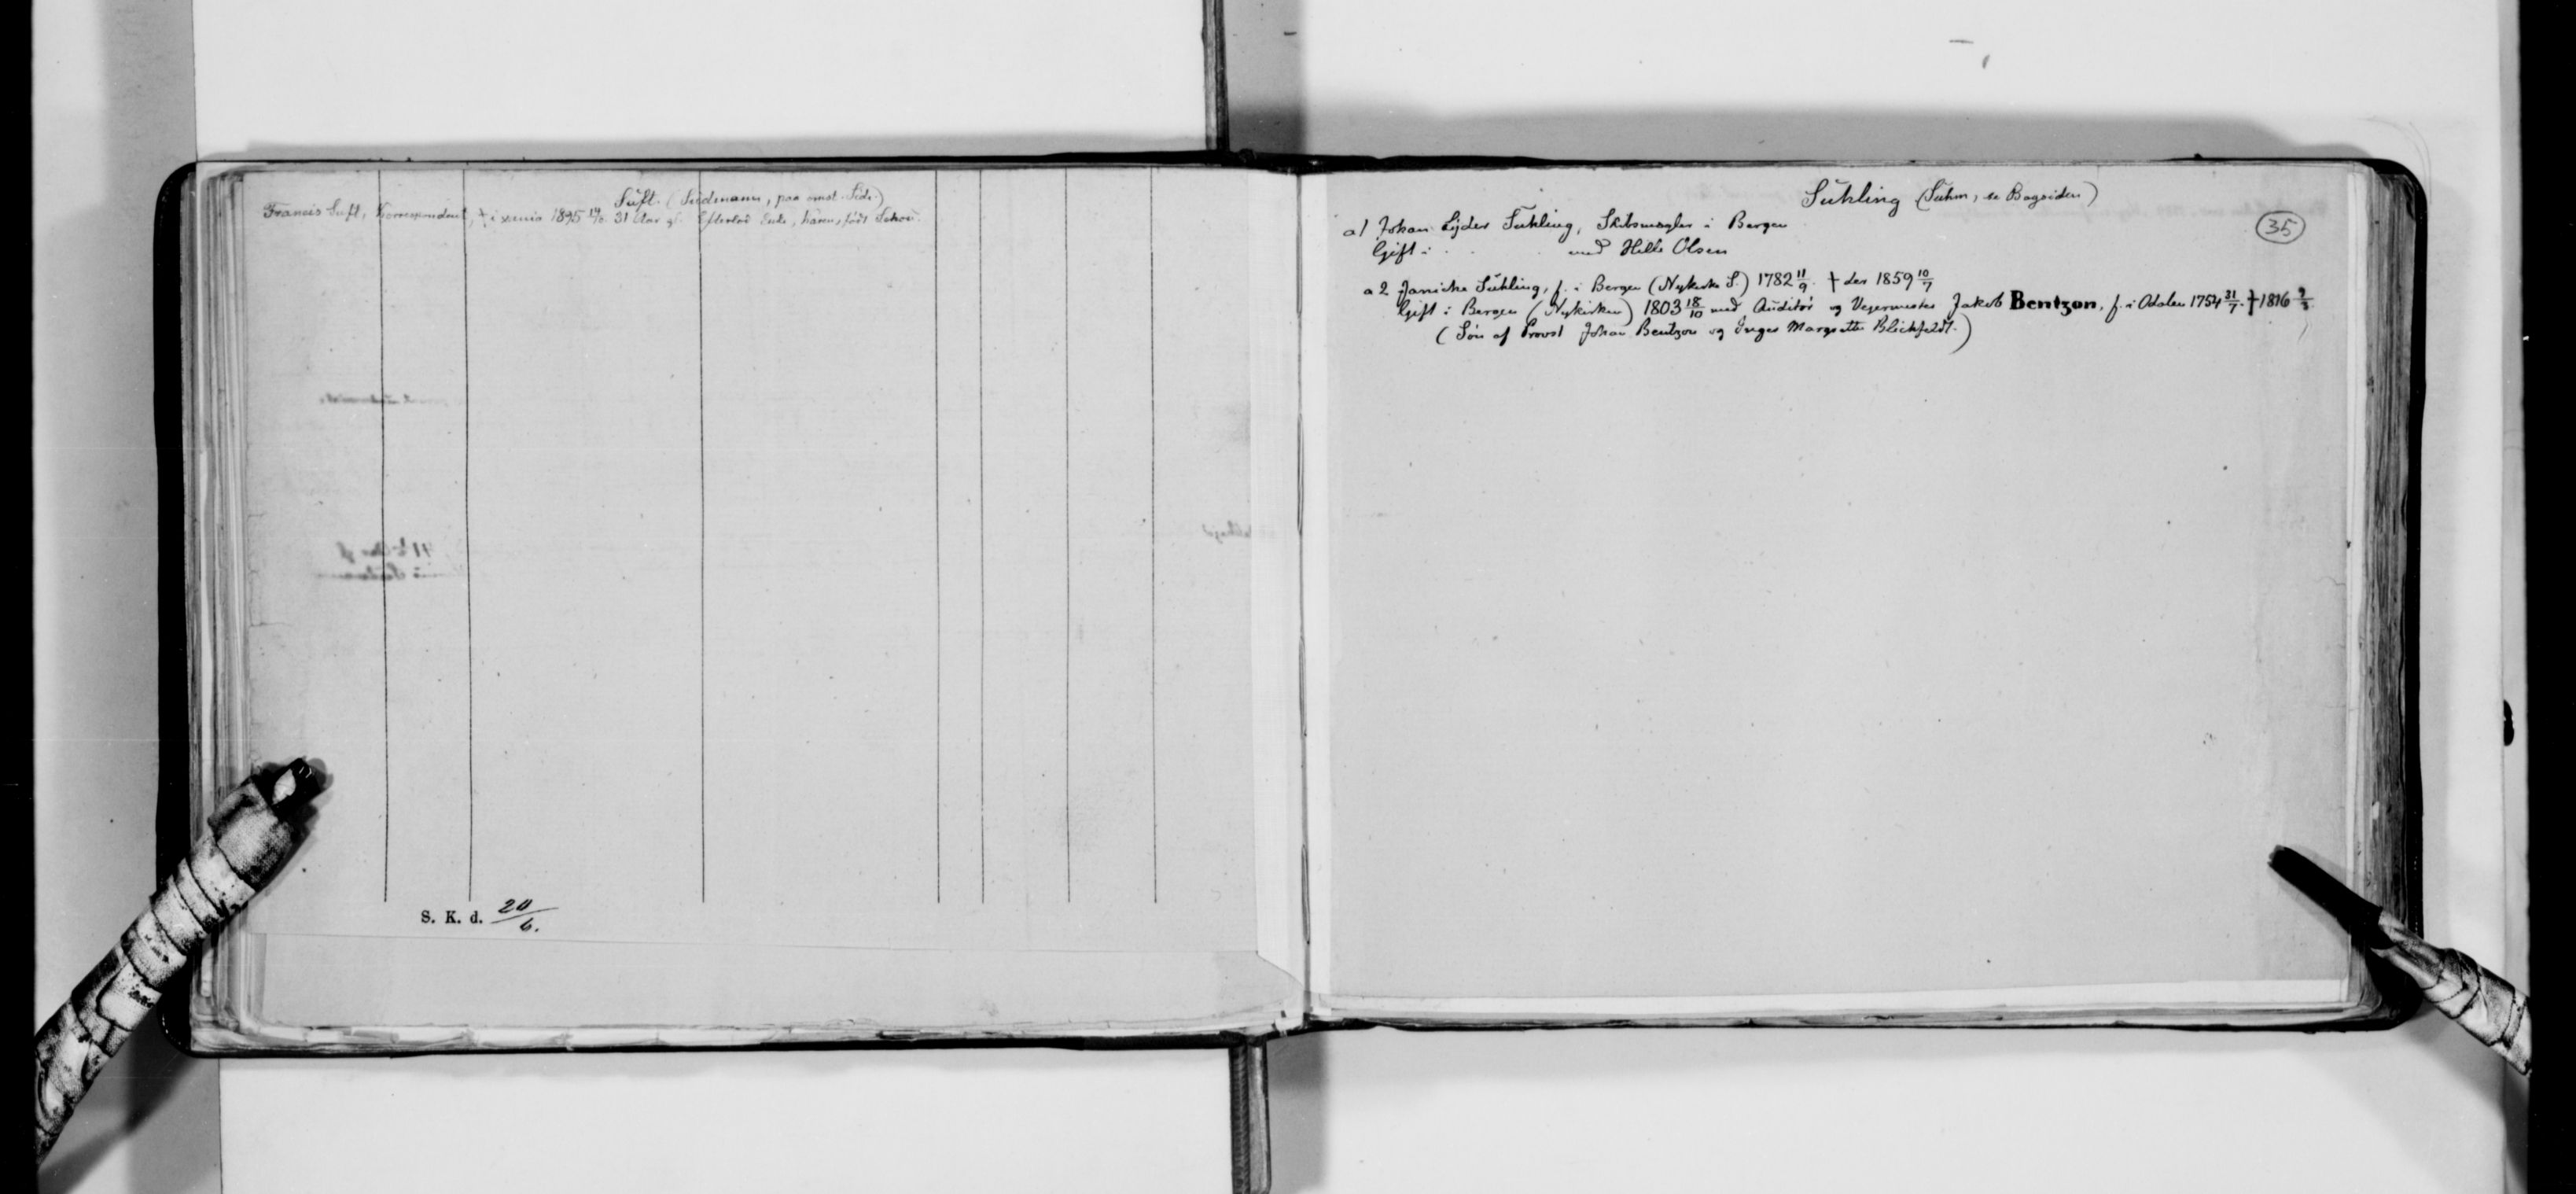 Suft. (Suedmann, paa omst. Side.)
Francis Suft, Korrespondent, † i Xania 1895 19/6. 31 Aar gl. Efterlod Enke, Karen, født Schou.
S. K. d. 20/6.
Suhling (Suhm, se Bagsiden)
35
a1 Johan Lyder Suhling, Skibsmægler i Bergen
Gift i . . med Hille Olsen
a2 Janicke Suhling, f. i Bergen (Nykirke S.) 1782 11/9. † der 1859 10/7
Gift i Bergen (Nykirken) 1803 18/10 med Auditør og Vejermester Jakob Bentzon, f. i Odalen 1754 31/7. † 1816 9/3.
(Søn af Provst Johan Bentzon og Inger Margrethe Blichfeldt.)